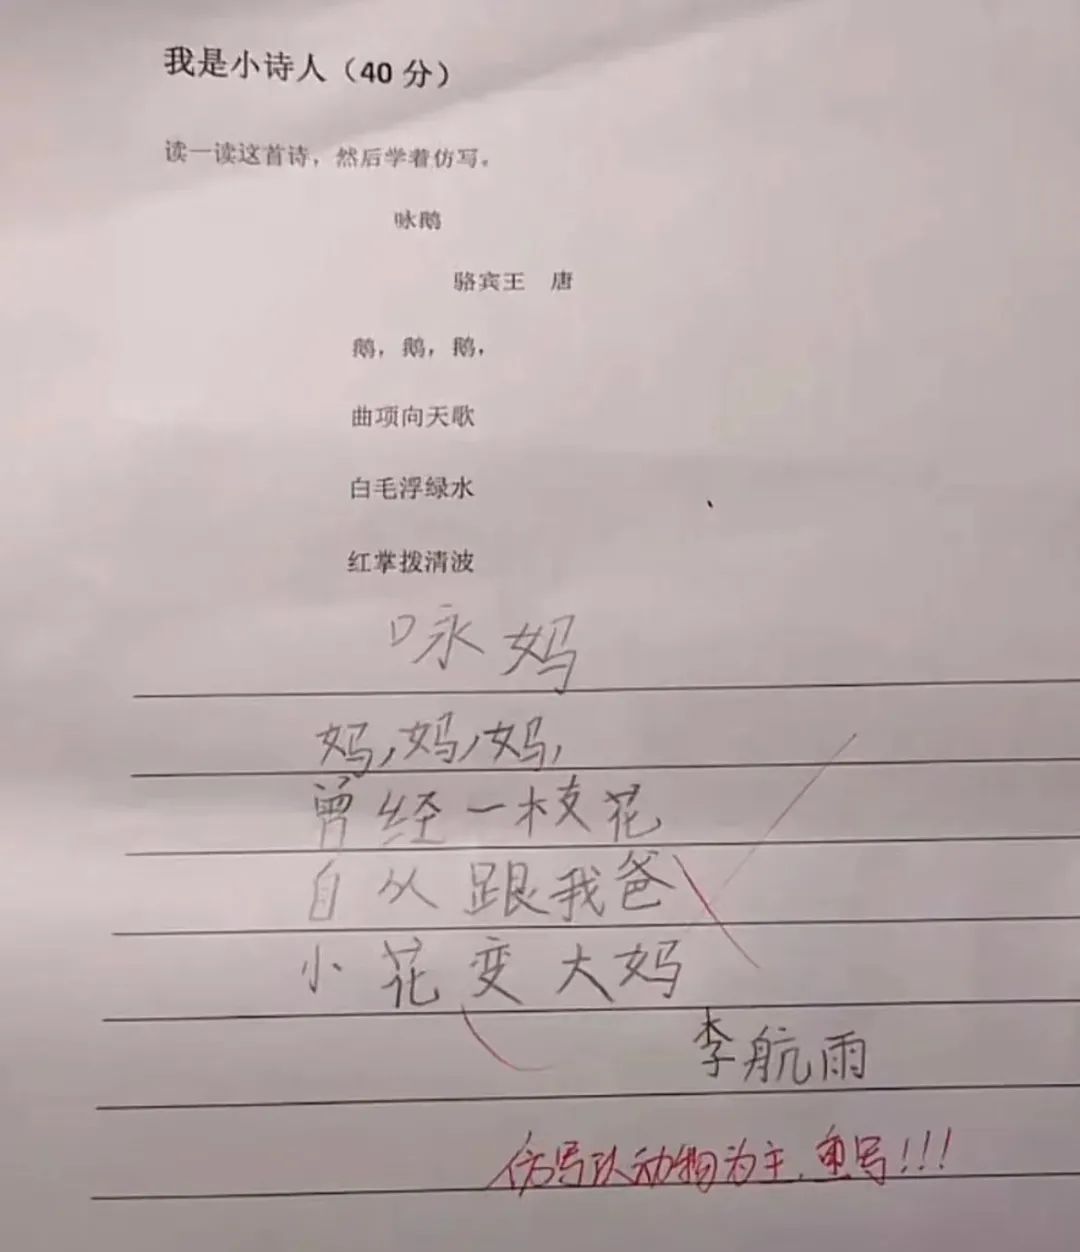 我是小诗人（40 分）
读一读这首诗，然后学着仿写。
咏鹅
骆宾王 唐
鹅，鹅，鹅，
曲项向天歌
白毛浮绿水
红掌拨清波
咏妈
妈,妈,妈,
曾经一枝花
自从跟我爸
小花变大妈
李航雨
仿写以动物为主.重写!!!